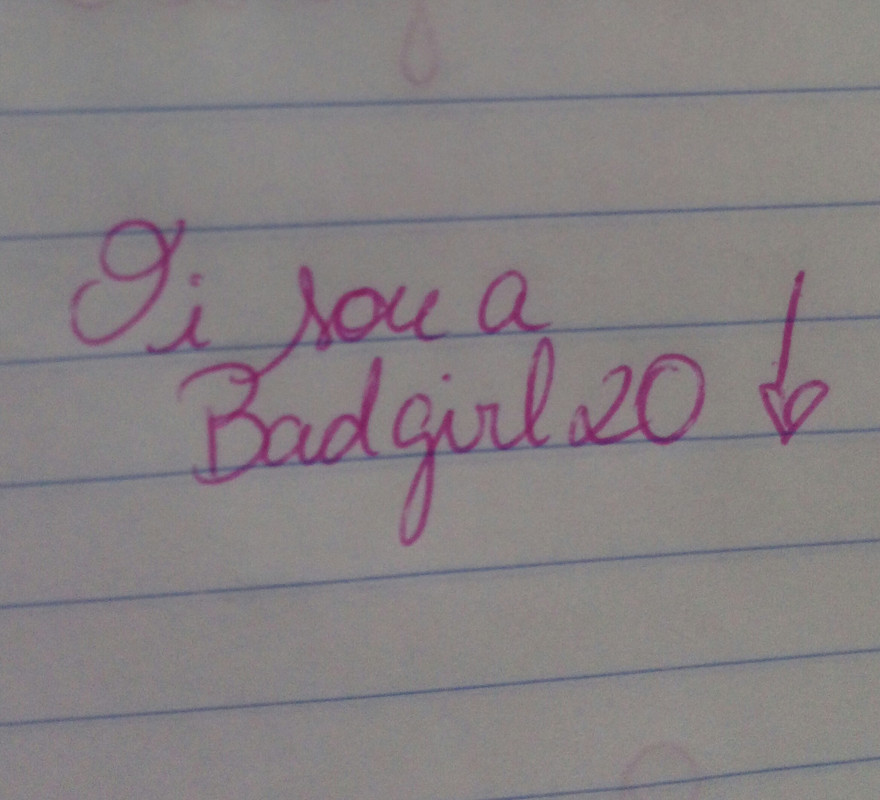 Oi sou a
Badgirl20